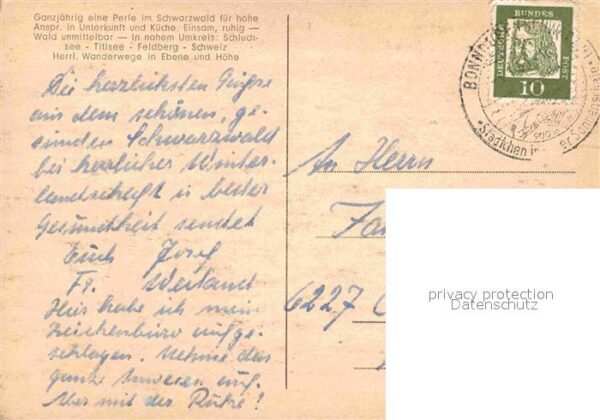 Ganzjährig eine Perle im Schwarzwald für hohe
Anspr. in Unterkunft und Küche. Einsam, ruhig —
Wald unmittelbar — In nahem Umkreis: Schluch-
see - Titisee - Feldberg - Schweiz
Herrl. Wanderwege in Ebene und Höhe
Die herzlichsten Grüsse
aus dem schönen, ge-
sunden Schwarzwald
bei herrlicher Winter-
landschaft in bester
Gesundheit sendet
Euch Josef
Fr. Weiland
Hier habe ich mein
Zeichenbüro aufge-
schlagen. Nehme das
ganze Anwesen auf.
Aber mit der Ruhe!
DEUTSCHE BUNDES POST
10
BONNDORF
Städtchen
An Herrn
6227
privacy protection
Datenschutz